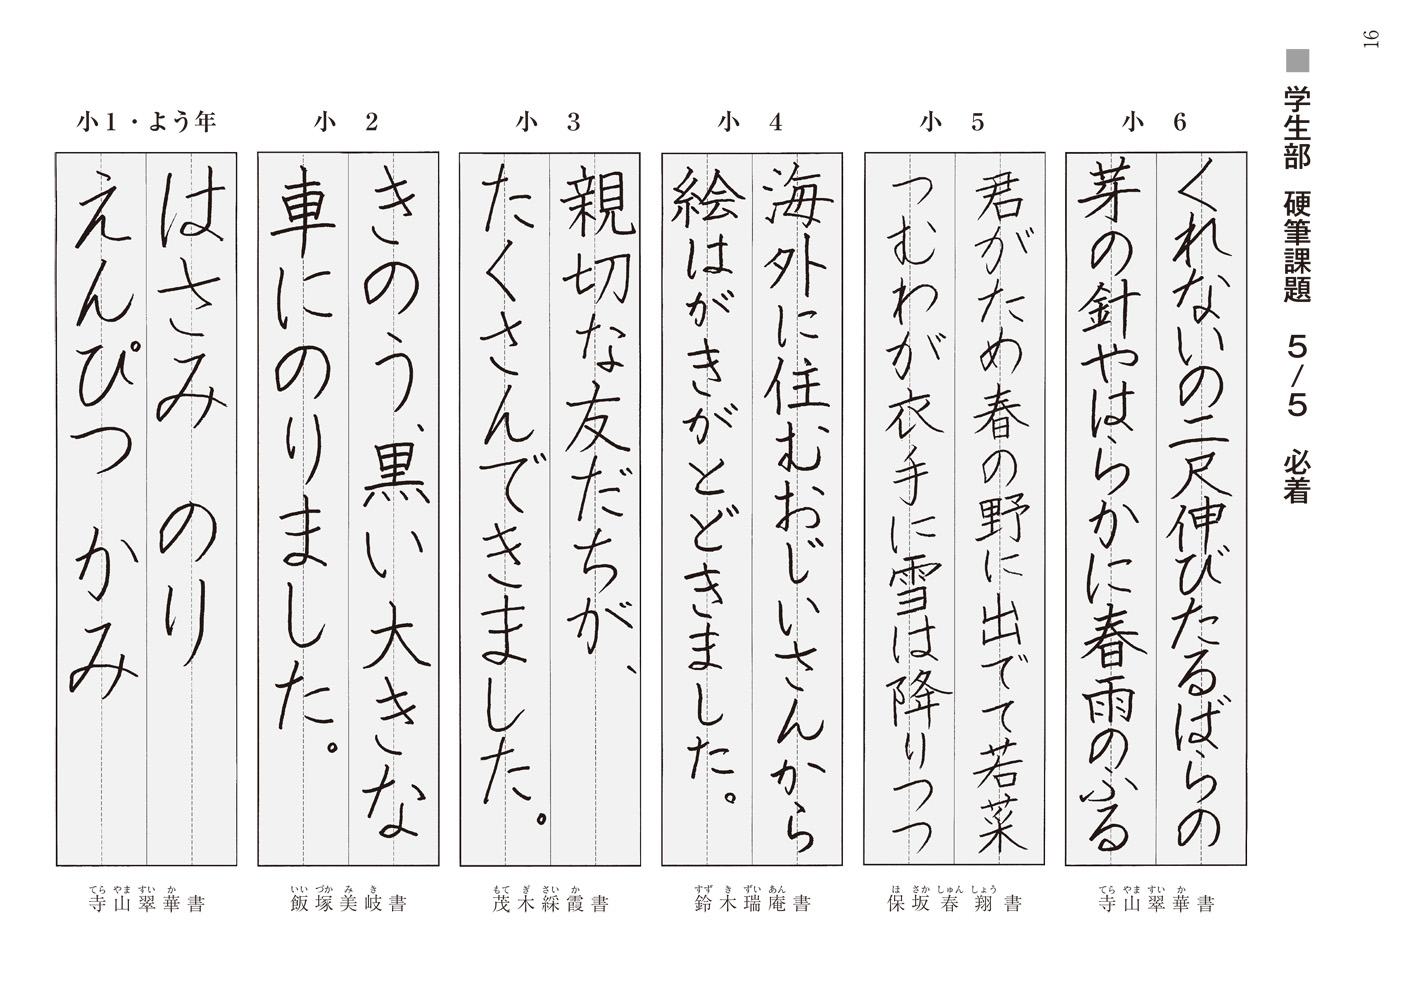 16
■学生部 硬筆課題 5/5 必着
小 6
くれないの二尺伸びたるばらの
芽の針やはらかに春雨のふる
寺山翠華書
てらやますいか
小 5
君がため春の野に出でて若菜
つむわが衣手に雪は降りつつ
保坂春翔書
ほさかしゅんしょう
小 4
海外に住むおじいさんから
絵はがきがとどきました。
鈴木瑞庵書
すずきずいあん
小 3
親切な友だちが、
たくさんできました。
茂木綵霞書
もてぎさいか
小 2
きのう、黒い大きな
車にのりました。
飯塚美岐書
いいづかみき
小1・よう年
はさみ のり
えんぴつ かみ
寺山翠華書
てらやますいか